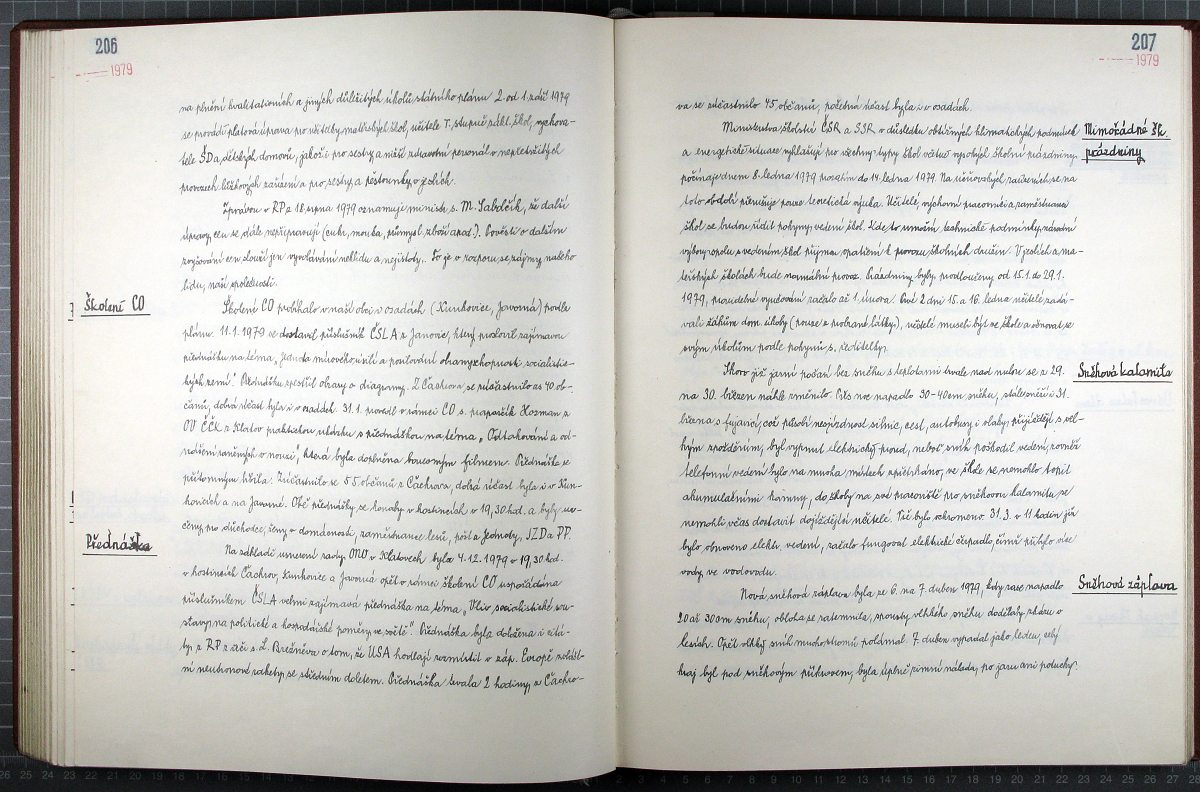 206
1979
na plnění kvalitativních a jiných důležitých úkolů státního plánu 2. od 1. září 1979
se provádí platová úprava pro učitelky mateřských škol, učitele I. stupně zákl. škol, vychova-
tele ŠD a dětských domovů, jakož i pro sestry a nižší zdravotní personál v nepřetržitých
provozech lůžkových zařízení a pro sestry a pěstounky v jeslích.
Zprávou v RP z 18. srpna 1979 oznamuje ministr s. M. Sabolčík, že další
úpravy cen se dále nepřipravují (cukr, mouka, průmysl. zboží apod.). Pověsti o dalším
zvyšování cen slouží jen vyvolávání neklidu a nejistoty. To je v rozporu se zájmy našeho
lidu, naší společnosti.
Školení CO
Školení CO probíhalo v naší obci i v osadách (Kunkovice, Javorná) podle
plánu. 11.1.1979 se dostavil příslušník ČSLA z Janovic, který proslovil zajímavou
přednášku na téma „Jednota mírového úsilí a posilování obranyschopnosti socialistic-
kých zemí." Přednášku zpestřil obrazy a diagramy. Z Čachrova se zúčastnilo as 40 ob-
čanů, dobrá účast byla i v osadách. 31.1. provedl v rámci CO s. praporčík Hozman z
OV ČČK z Klatov praktickou ukázku s přednáškou na téma „Odtahování a od-
nášení raněných v nouzi", která byla doplněna barevným filmem. Přednáška se
přítomným líbila. Zúčastnilo se 55 občanů z Čachrova, dobrá účast byla i v Kun-
kovicích a na Javorné. Obě přednášky se konaly v hostincích v 19,30 hod. a byly ur-
čeny pro důchodce, ženy v domácnosti, zaměstnance lesů, pošt a Jednoty, JZD a PP.
Přednáška
Na základě usnesení rady ONV v Klatovech byla 4.12.1979 v 19,30 hod.
v hostincích Čachrov, Kunkovice a Javorná opět v rámci školení CO uspořádána
příslušníkem ČSLA velmi zajímavá přednáška na téma „Vliv socialistické sou-
stavy na politické a hospodářské poměry ve světě". Přednáška byla doložena i citá-
ty z RP z řeči s. L. Brežněva o tom, že USA hodlají rozmístit v záp. Evropě zvlášt-
ní neutronové rakety se středním doletem. Přednáška trvala 2 hodiny, z Čachro-
207
1979
va se zúčastnilo 45 občanů, početná účast byla i v osadách.
Mimořádné šk.
prázdniny
Ministerstva školství ČSR a SSR v důsledku obtížných klimatických podmínek
a energetické situace vyhlašují pro všechny typy škol včetně vysokých školní prázdniny,
počínaje dnem 8. ledna 1979 prozatím do 14. ledna 1979. Na učňovských zařízeních se na
toto období přerušuje pouze teoretická výuka. Učitelé, výchovní pracovníci a zaměstnanci
škol se budou řídit pokyny vedení škol. Kde to umožní technické podmínky, národní
výbory spolu s vedením škol přijmou opatření k provozu školních družin. V jeslích a ma-
teřských školách bude normální provoz. Prázdniny byly prodlouženy od 15.1. do 29.1.
1979, pravidelné vyučování začalo až 1. února. Prvé 2 dni 15. a 16. ledna učitelé zadá-
vali žákům dom. úkoly (pouze z probrané látky), učitelé museli být ve škole a věnovat se
svým úkolům podle pokynů s. ředitelky.
Sněhová kalamita
Skoro již jarní počasí bez sněhu s teplotami trvale nad nulou se z 29.
na 30. březen náhle změnilo. Přes noc napadlo 30-40 cm sněhu, stále sněží i 31.
března s fujavicí, což působí nesjízdnost silnic, cest, autobusy i vlaky přijíždějí s vel-
kým zpožděním, byl vypnut elektrický proud, neboť sníh poškodil vedení, rovněž
telefonní vedení bylo na mnoha místech zpřetrháno, ve škole se nemohlo topit
akumulačními kamny, do školy na své pracoviště pro sněhovou kalamitu se
nemohli včas dostavit dojíždějící učitelé. Vše bylo ochromeno. 31.3. v 11 hodin již
bylo obnoveno elektr. vedení, začalo fungovat elektrické čerpadlo, čímž přibylo více
vody ve vodovodu.
Sněhová záplava
Nová sněhová záplava byla ze 6. na 7. duben 1979, kdy zase napadlo
20 až 30 cm sněhu, obloha se zatemnila, spousty vlhkého sněhu dodělaly zkázu v
lesích. Opět vlhký sníh mnoho stromů polámal. 7. duben vypadal jako leden, celý
kraj byl pod sněhovým příkrovem, byla úplně zimní nálada, po jaru ani potuchy.